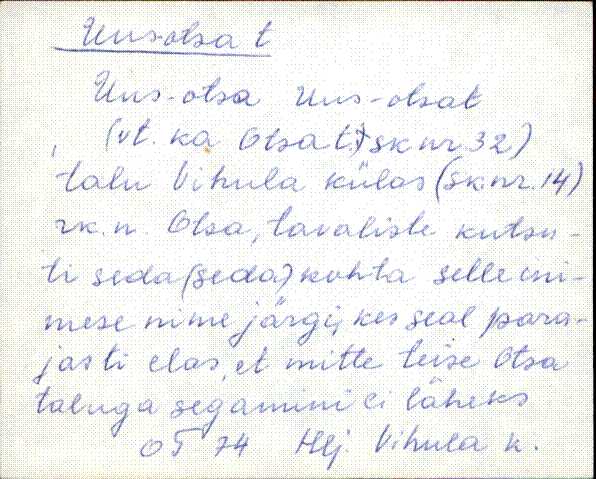 Uus-otsa t
Uus-otsa Uus-otsat
(vt. ka Otsa t, sk nr 32)
talu Vihula külas (sk.nr. 14)
rk. n. Otsa, tavaliste kutsu-
ti seda (seda) kohta selle ini-
mese nime järgi, kes seal para-
jasti elas, et mitte teise Otsa
taluga segamini ei läheks
OT 74 Hlj. Vihula k.